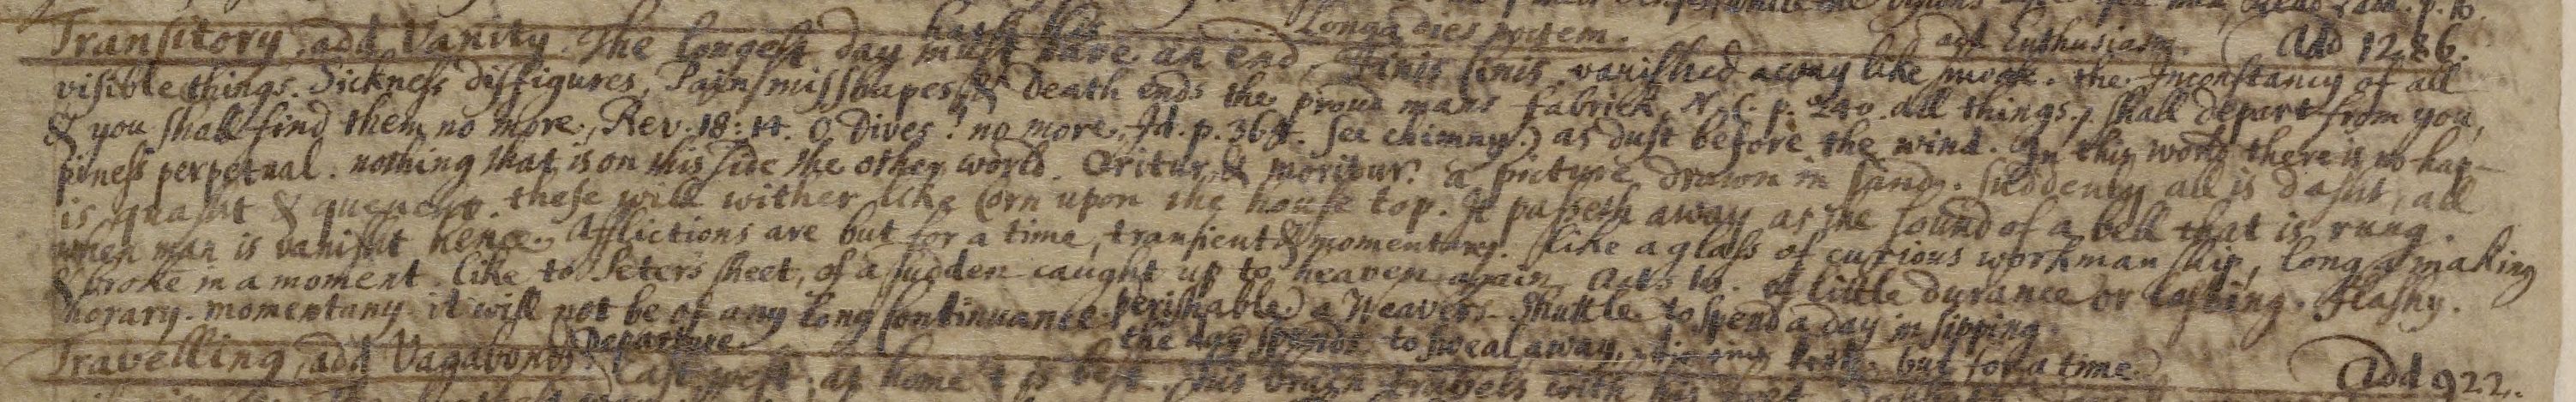 hath his Longa dies noctem. add Enthusiasm.
Transitory, add Vanity. The longest day must have an end. Finis finis. vanished away like smoak. the Inconstancy of all Add 1286.
visible things. Sickness disfigures, Pain misshapes, & Death ends the proud mans fabrick. N. C. p. 240. all things shall depart from you,
& you shall find them no more, Rev. 18: 14. O Dives! no more, Id. p. 368. see chimny.) as dust before the wind. In this world there is no hap-
piness perpetual. nothing that is on this side the other world. Oritur, & moritur. a picture drawn in sand. Suddenly all is dasht, all
is quasht & quencht. these will wither like Corn upon the house top. It passeth away as the sound of a bell that is rung.
when man is vanisht hence. Afflictions are but for a time, transient & momentany. like a glass of curious workmanship, long a making
& broke in a moment. like to Peters sheet, of a sudden caught up to heaven again, Acts 10. of little durance or lasting. flashy.
horary. momentany. it will not be of any long continuance. perishable) a Weavers Shuttle. to spend a day in sipping
the day to sweal away, but for a time)
Travelling, add Vagabonds. Departure. East west, at home 't is best. his brain travels with his Add 922.